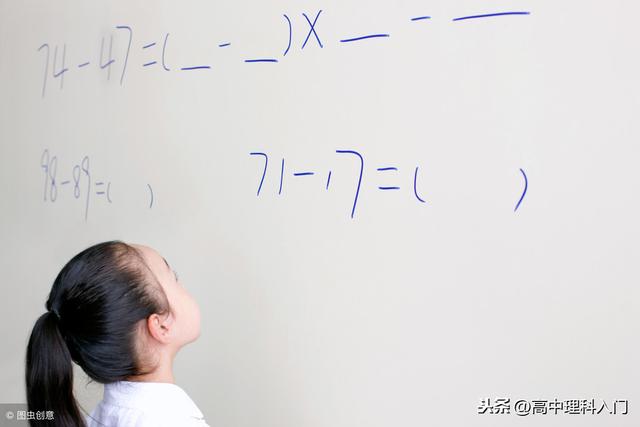 74-47=(_-_)×_-_
98-89=( )
71-17=( )
© 图虫创意
头条 @高中理科入门